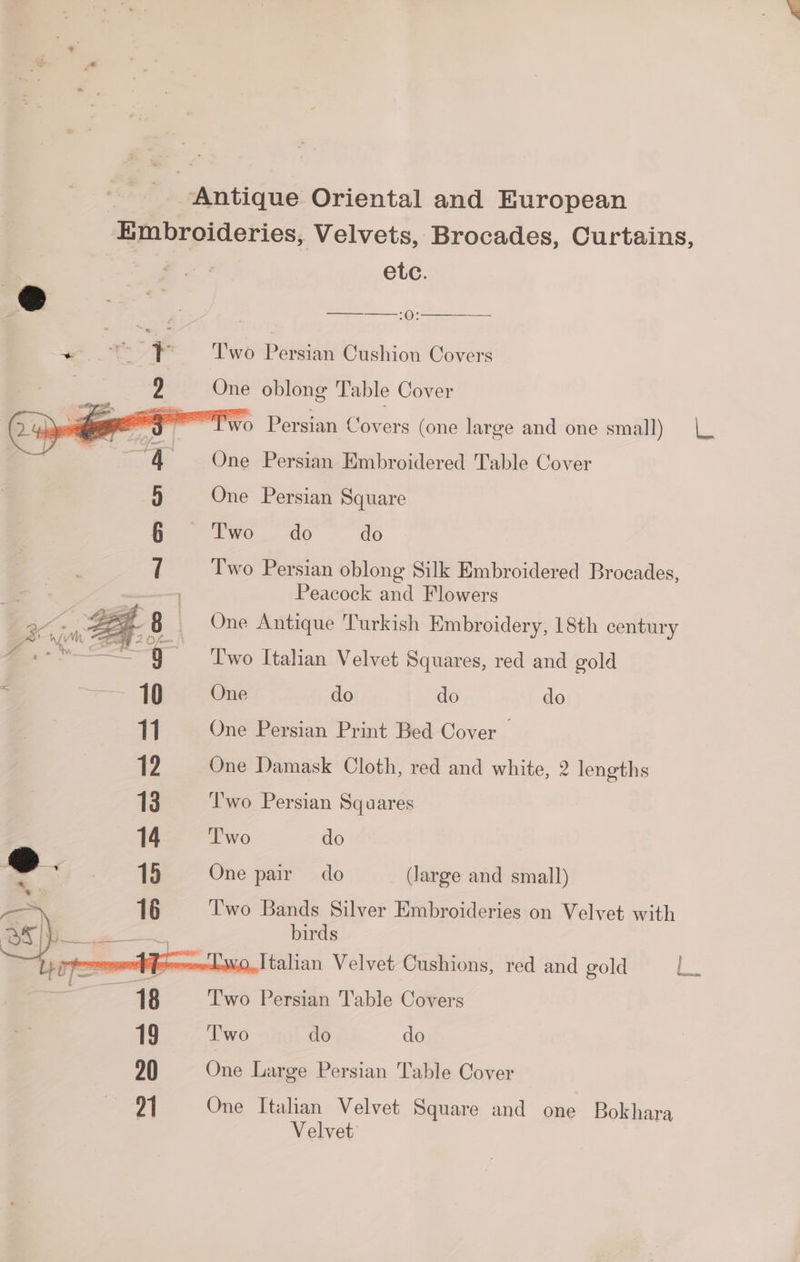 Antique Oriental and European
Embroideries, Velvets, Brocades, Curtains,
etc.
:O:
1 Two Persian Cushion Covers
2 One oblong Table Cover
3 Two Persian Covers (one large and one small) L
4 One Persian Embroidered Table Cover
5 One Persian Square
6 Two do do
7 Two Persian oblong Silk Embroidered Brocades,
Peacock and Flowers
8 One Antique Turkish Embroidery, 18th century
9 Two Italian Velvet Squares, red and gold
10 One do do do
11 One Persian Print Bed Cover
12 One Damask Cloth, red and white, 2 lengths
13 Two Persian Squares
14 Two do
15 One pair do (large and small)
16 Two Bands Silver Embroideries on Velvet with
birds
17 Two Italian Velvet Cushions, red and gold L
18 Two Persian Table Covers
19 Two do do
20 One Large Persian Table Cover
21 One Italian Velvet Square and one Bokhara
Velvet